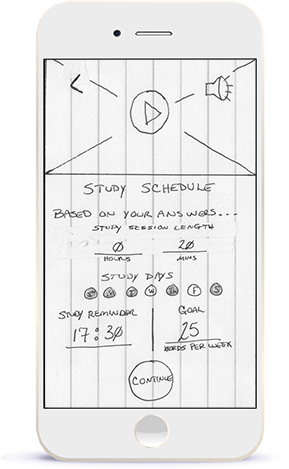 STUDY SCHEDULE
BASED ON YOUR ANSWERS...
STUDY SESSION LENGTH
0 20
HOURS MINS
STUDY DAYS
S M T W Th F S
STUDY REMINDER GOAL
17:30 25
WORDS PER WEEK
CONTINUE